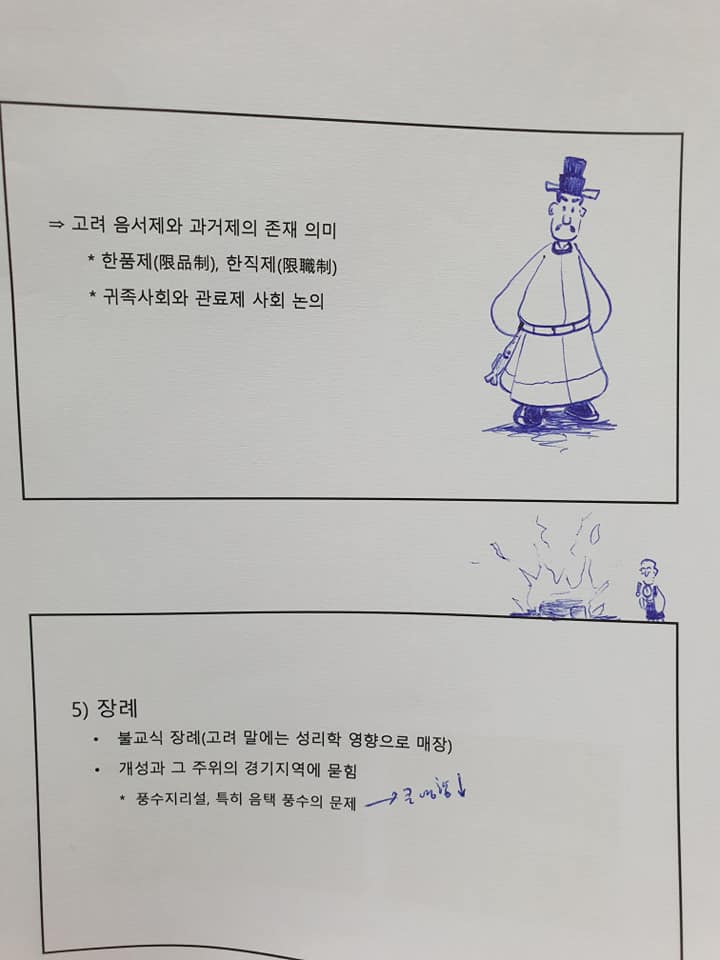 ⇒ 고려 음서제와 과거제의 존재 의미
* 한품제(限品制), 한직제(限職制)
* 귀족사회와 관료제 사회 논의
5) 장례
• 불교식 장례(고려 말에는 성리학 영향으로 매장)
• 개성과 그 주위의 경기지역에 묻힘
* 풍수지리설, 특히 음택 풍수의 문제 → 큰 영향↓